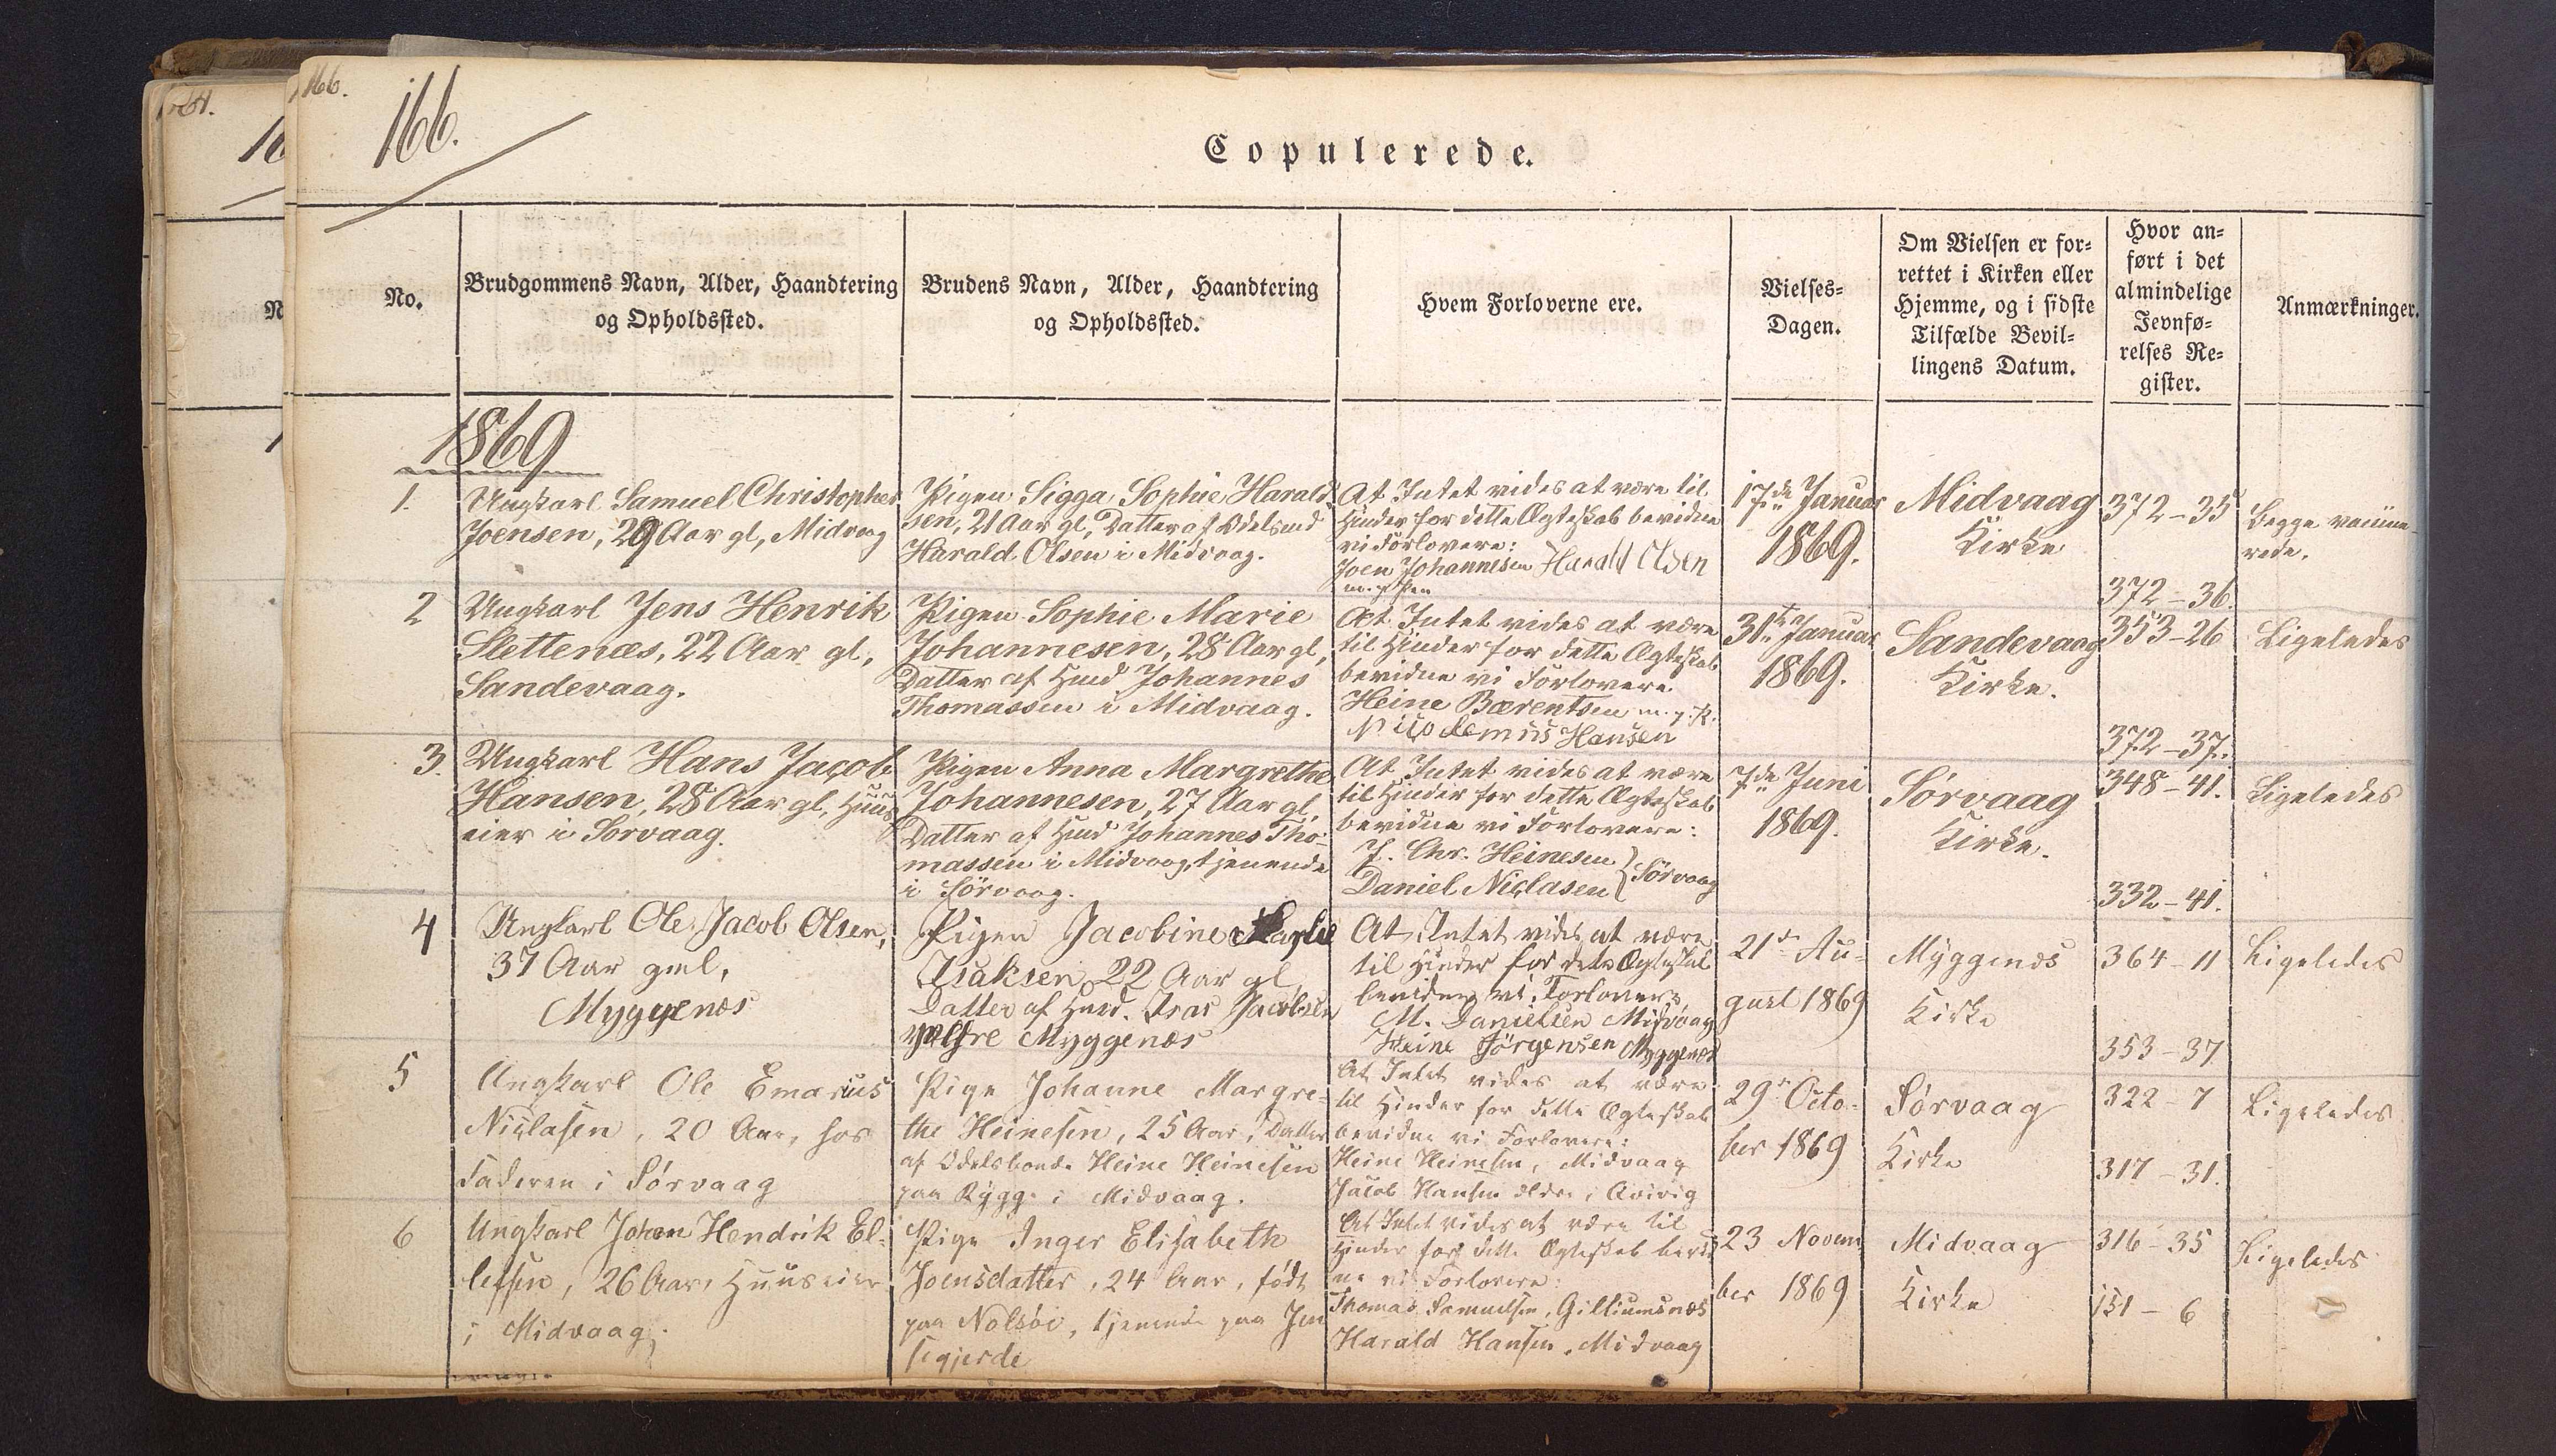 166.
164.
166.
Copulerede.
No.
Brudgommens Navn, Alder, Haandtering
og Opholdssted.
Brudens Navn, Alder, Haandtering
og Opholdssted.
Hvem Forloverne ere.
Vielses-
Dagen.
Om Vielsen er for-
rettet i Kirken eller
Hjemme, og i sidste
Tilfælde Bevil-
lingens Datum.
Hvor an-
ført i det
almindelige
Jevnfø-
relses Re-
gister.
Anmærkninger.
1869
1.
Ungkarl Samuel Christopher
Joensen, 29 Aar gl, Midvaag
Pigen Sigga Sophie Harald
sen, 21 Aar gl, Datter af Odelsmd
Harald Olsen i Midvaag.
At Intet vides at være til
Hinder for dette Ægteskab bevidne
vi Forlovere:
Joen Johannesen Harald Olsen
17de Januar
1869.
Midvaag
Kirke
372-35
Begge vaccine
rede.
2
Ungkarl Jens Henrik
Slettenæs, 22 Aar gl,
Sandevaag.
Pigen Sophie Marie
Johannesen, 28 Aar gl,
Datter af Hmd Johannes
Thomassen i Midvaag.
At Intet vides at være
til Hinder for dette Ægteskab
bevidne vi Forlovere
Heine Bærentsen m.p.P.
Nicodemus Hansen
31te Januar
1869.
Sandevaag
Kirke.
372-36.
353-26
Ligeledes
3.
Ungkarl Hans Jacob
Hansen, 28 Aar gl, Huus
eier i Sørvaag.
Pigen Anna Margrethe
Johannesen, 27 Aar gl,
Datter af Hmd Johannes Tho-
massen i Midvaag, tjenende
i Sørvaag.
At Intet vides at være
til Hinder for dette Ægteskab
bevidne vi Forlovere:
J. Chr. Heinesen
Daniel Niclasen } Sørvaag
7de Juni
1869.
Sørvaag
Kirke.
372-37.
348-41.
Ligeledes
4
Ungkarl Ole Jacob Olsen,
37 Aar gml,
Myggenæs
Pigen Jacobine
Isaksen 22 Aar gl
Datter af Hmd. Isac Jacobsen
Myggenæs
At Intet vides at være
til Hinder for dette Ægteskab
bevidne vi Forlovere,
M. Danielsen Midvaag
Heine Jørgensen Myggenæs
21de Au-
gust 1869
Myggenæs
Kirke
332-41.
364-11
Ligeledes
5
Ungkarl Ole Emarius
Niclasen, 20 Aar, hos
Faderen i Sørvaag
Pige Johanne Margre-
the Heinesen, 25 Aar, Datter
af Odelsbonde Heine Heinesen
paa Rygge i Midvaag.
At Intet vides at være
til Hinder for dette Ægteskab
bevidne vi Forlovere:
Heine Heinesen, Midvaag
Jacob Hansen ældre i
29de Octo-
ber 1869
Sørvaag
Kirke
353-37
322-7
317-31.
Ligeledes
6
Ungkarl Johan Hendrik El-
lefsen, 26 Aar, Huuseier
i Midvaag.
Pige Inger Elisabeth
Joensdatter, 24 Aar, født
paa Nolsøi, tjenende paa Jen
segjerde
At Intet vides at være til
Hinder for dette Ægteskab bevid
ne vi Forlovere:
Thomas Samuelsen, Gilliumsnæs
Harald Hansen, Midvaag
23 Novem
ber 1869
Midvaag
Kirke
316-35
151-6
Ligeledes